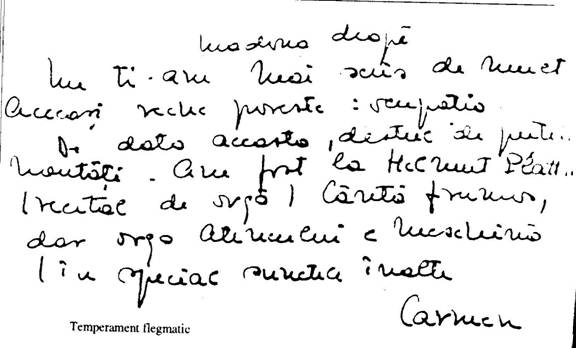 dragă
Nu ți-am mai scris de mult
Aceeași veche poveste : ocupația
De data aceasta, destul de puține
noutăți. Am fost la Helmut Platt..
(recital de orgă) Cântă frumos,
dar orga Ateneului e meschină
(în special sunetele înalte
Carmen
Temperament flegmatic